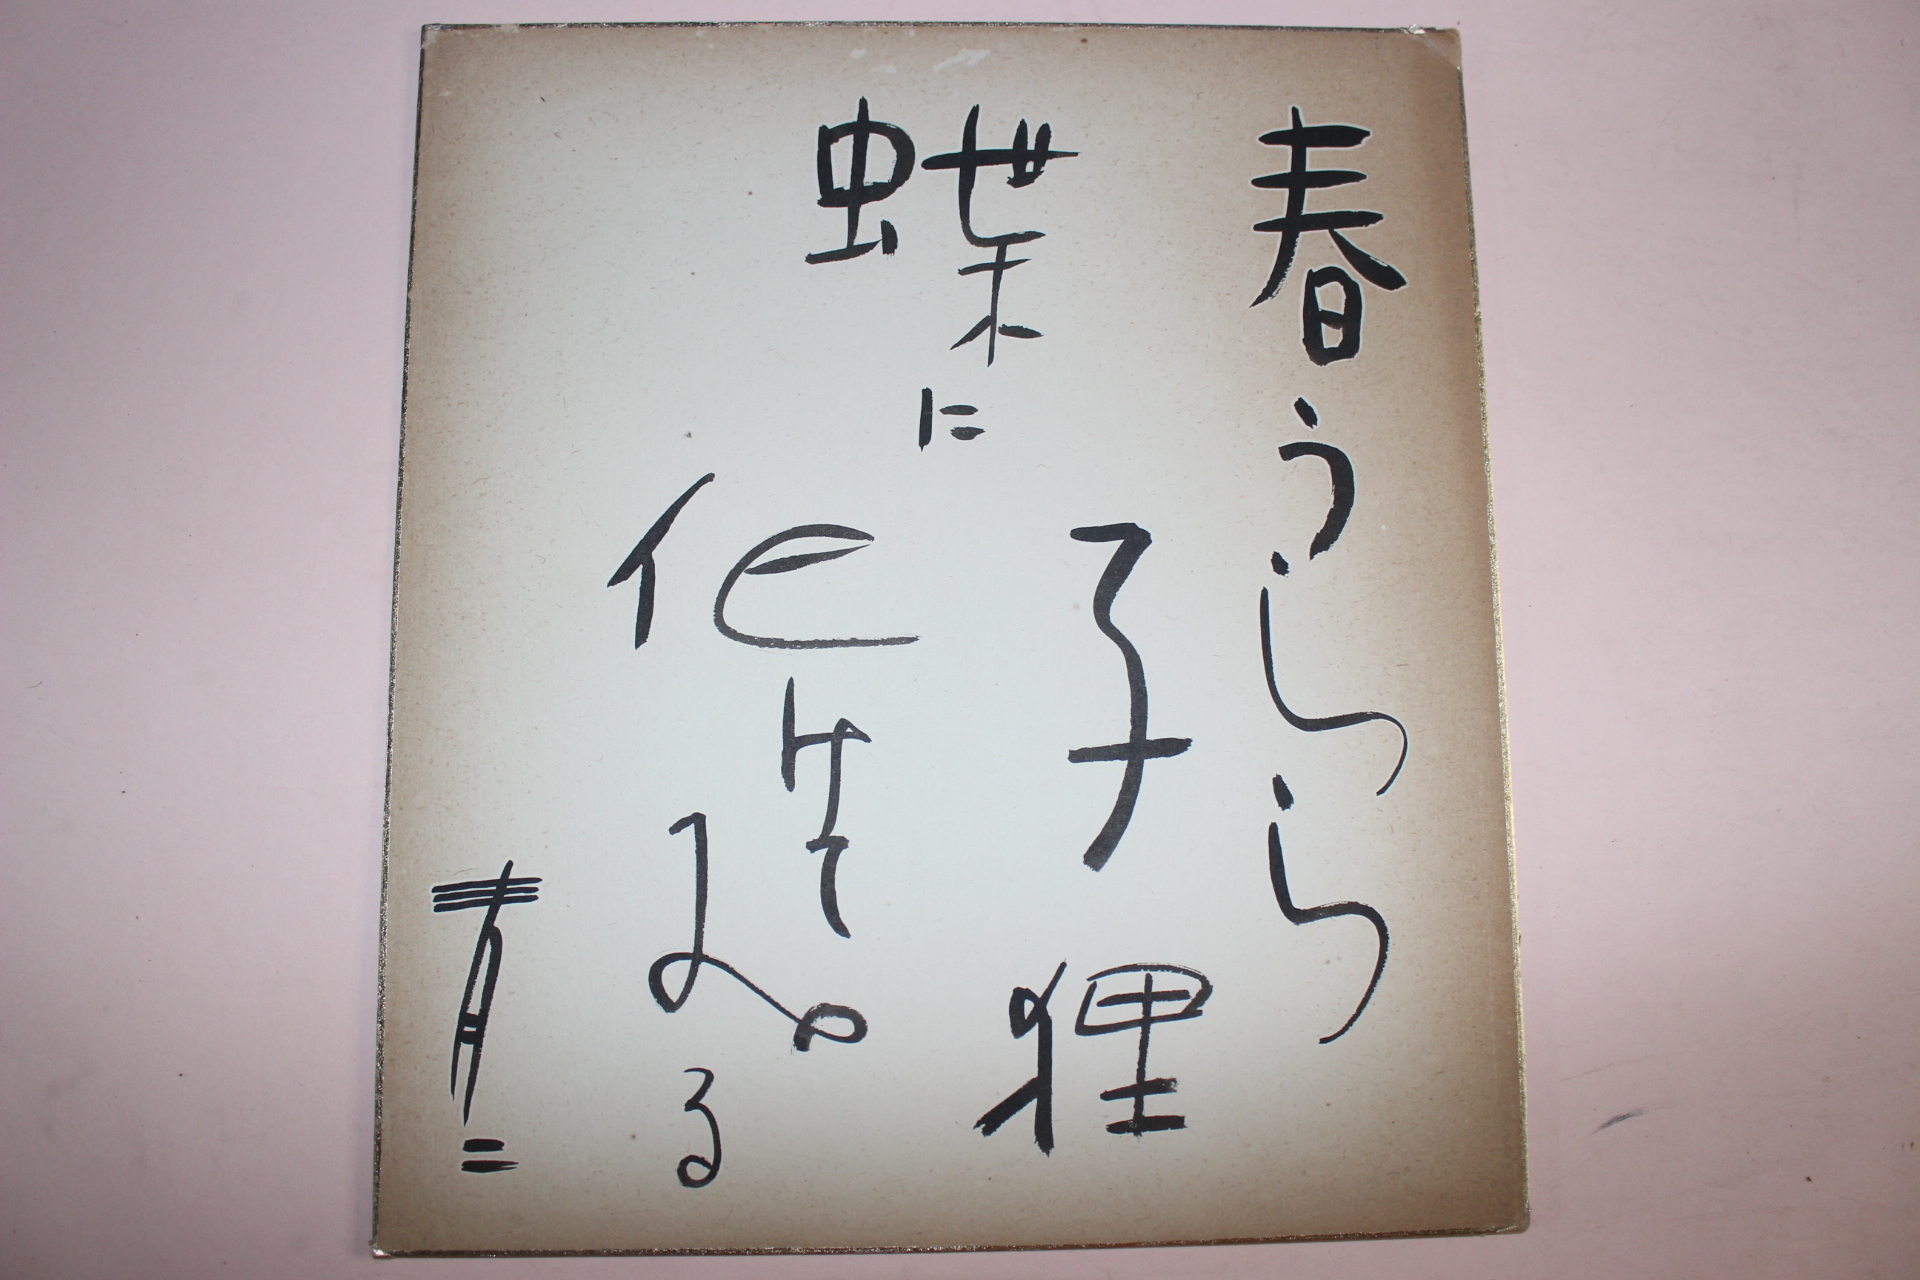 春うらら
子狸
蝶に
化けてみる
青二